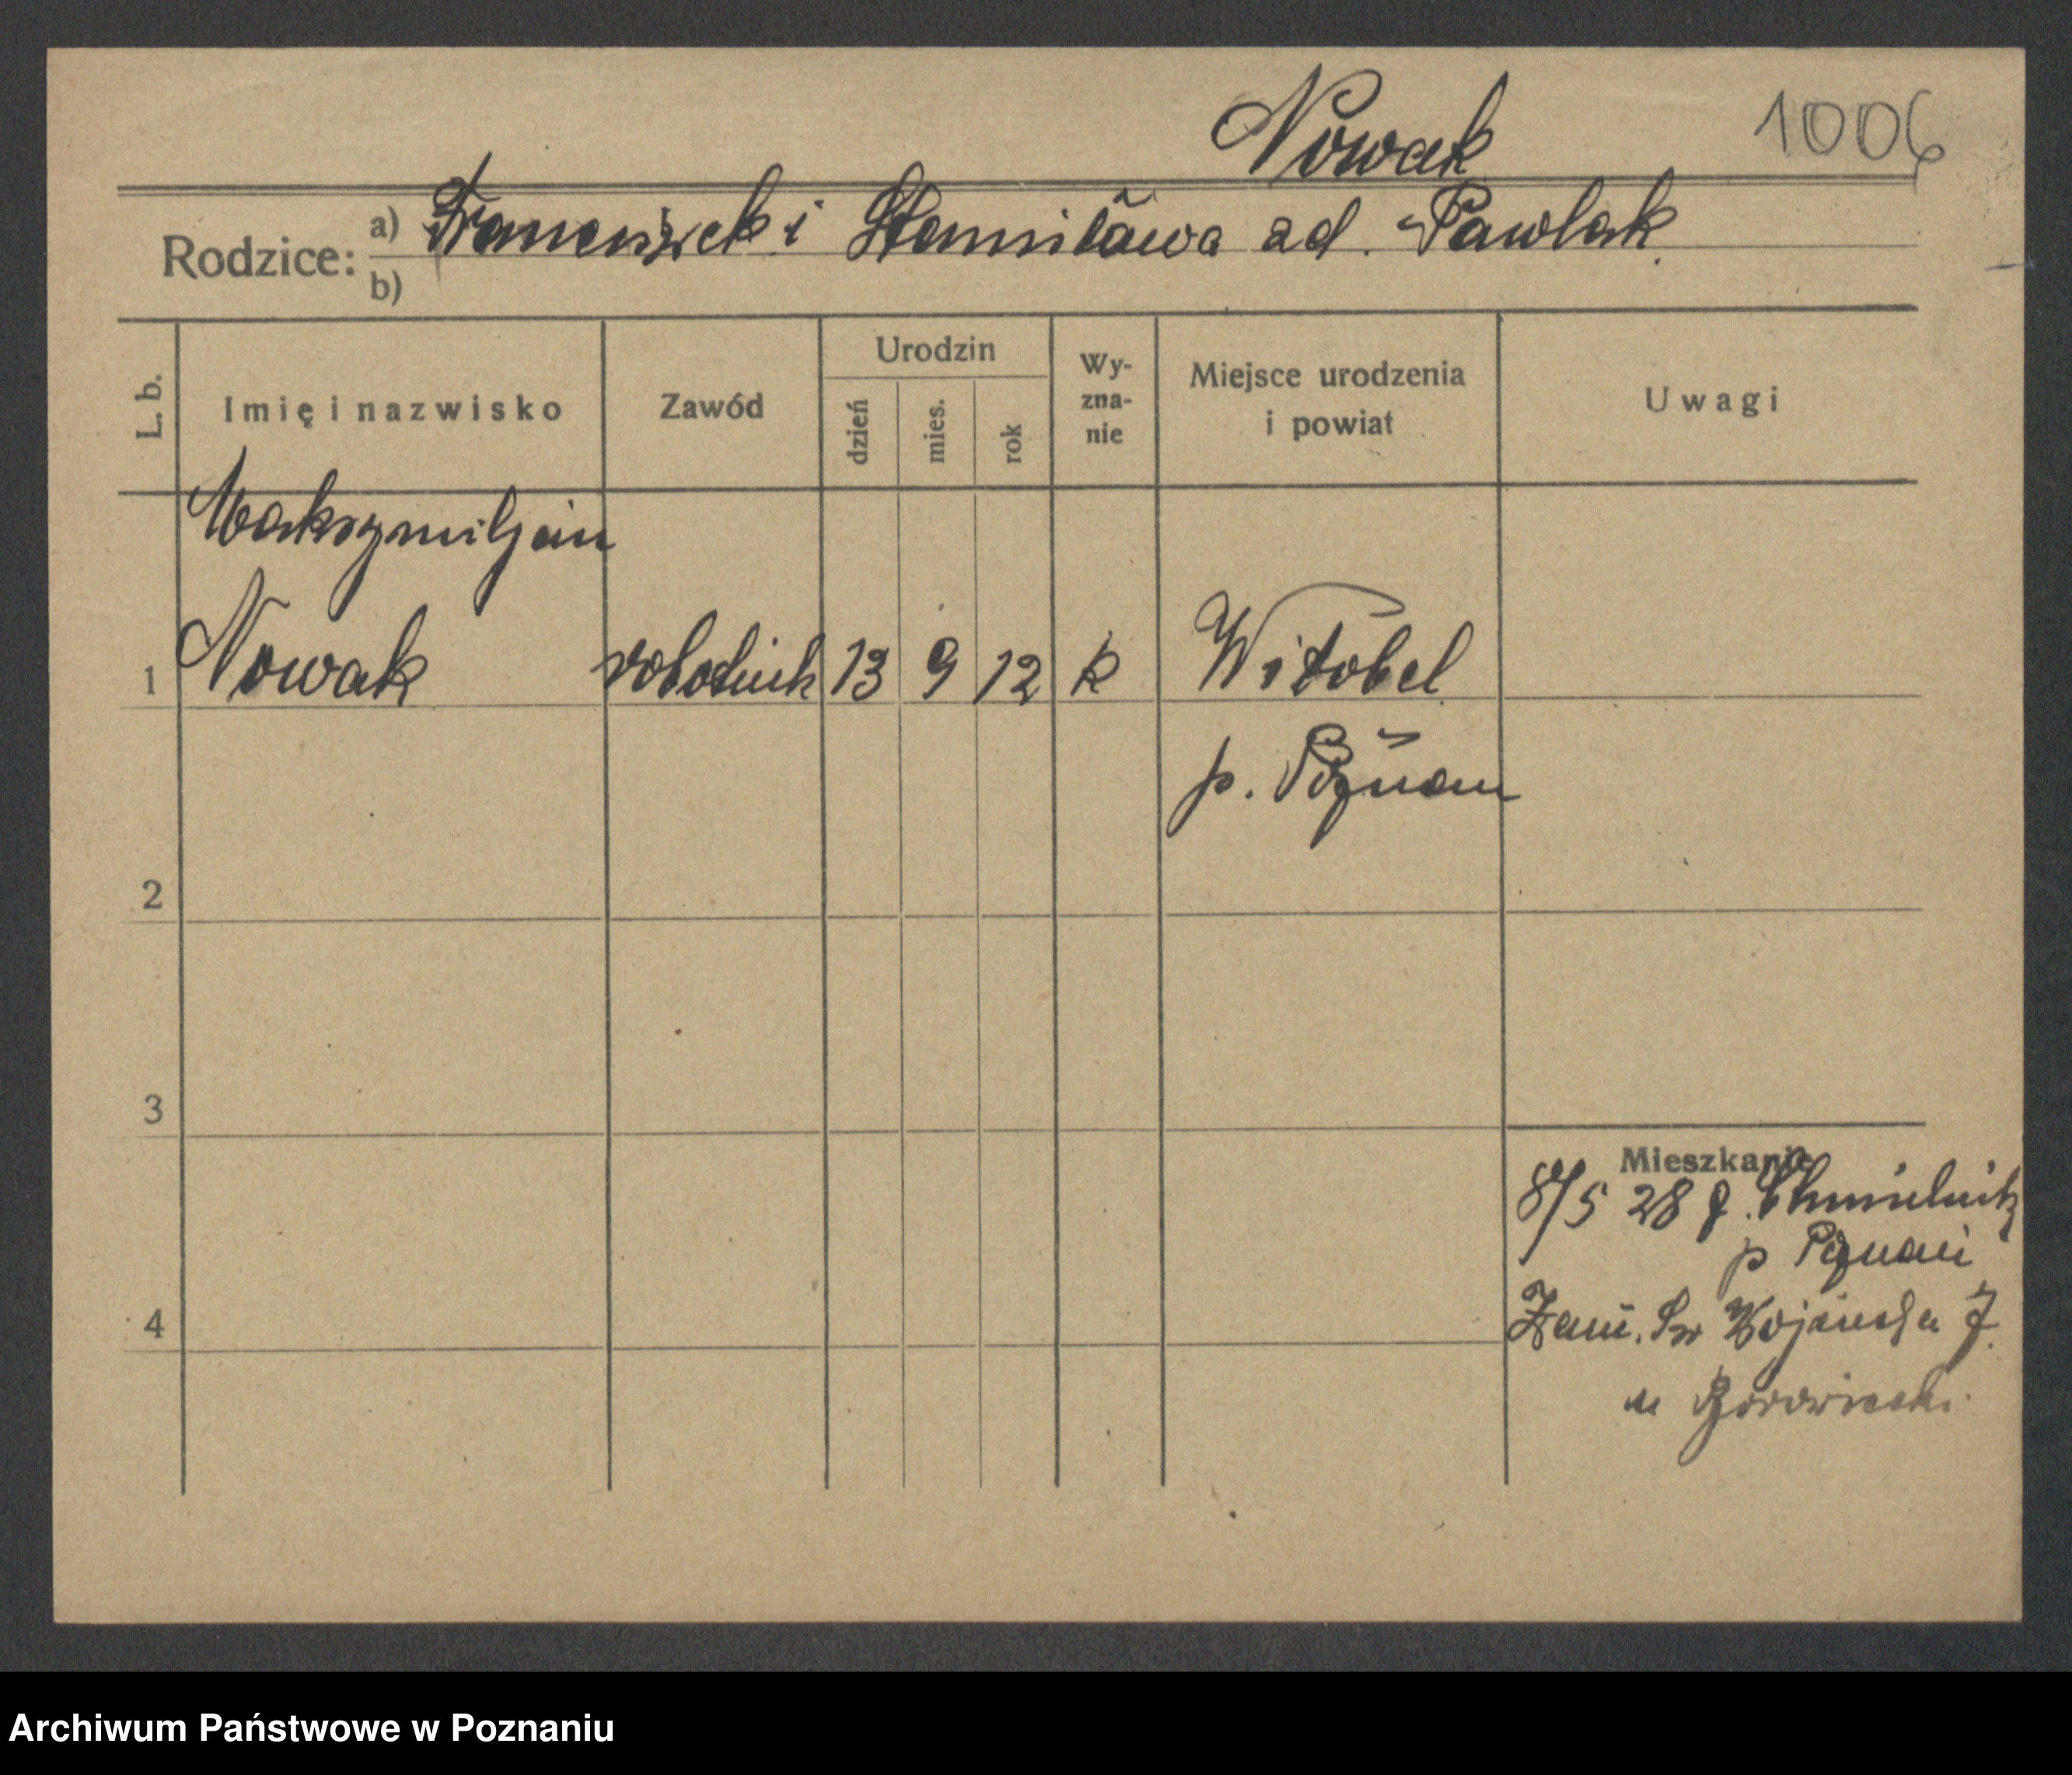 Nowak 1006
Rodzice: a) Franciszek i Stanisława zd. Pawlak
b)
L. b. Imię i nazwisko Zawód Urodzin dzień mies. rok Wy-zna-nie Miejsce urodzenia i powiat Uwagi
Maksymiljan
1 Nowak robotnik 13 9 12 k Witobel
p. Poznań
2
3
Mieszkanie
8/5 28 z Chmielnik
p Poznań
4 Zam. Św Wojciecha 7
u
Archiwum Państwowe w Poznaniu